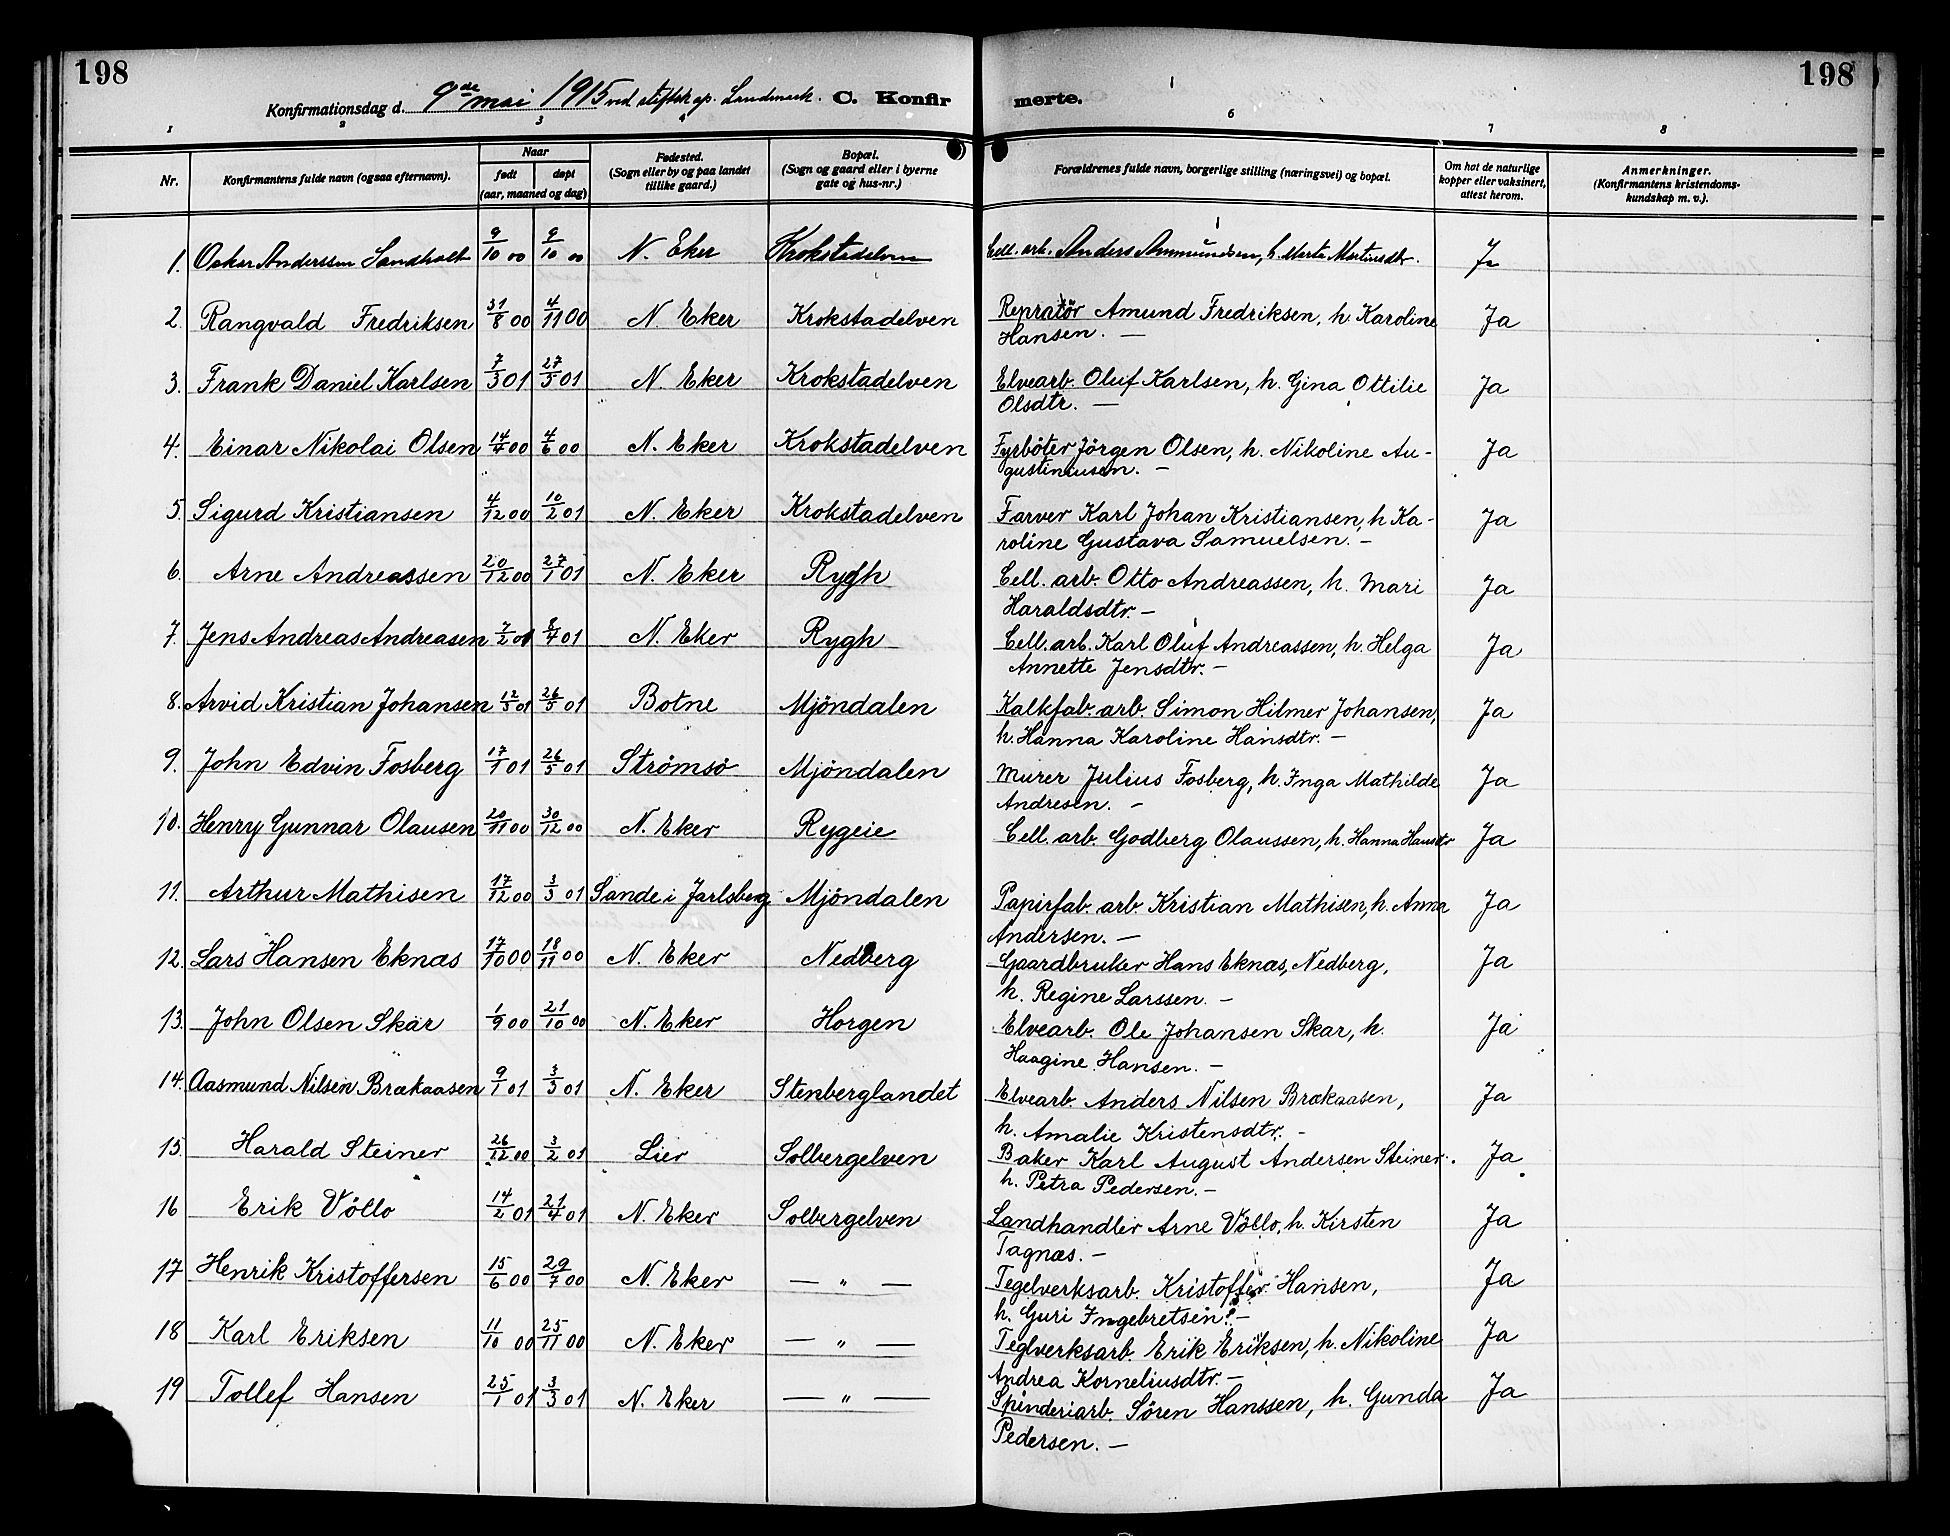 198
198
Konfirmationsdag d. 9de mai 1915 ved stiftskap. Landmark. C. Konfirmerte.
1 2 3 4 6 7 8
Nr. | Konfirmantens fulde navn (ogsaa efternavn). | Naar født døpt (aar, maaned og dag) | Fødested. (Sogn eller by og paa landet tillike gaard.) | Bopæl. (Sogn og gaard eller i byerne gate og hus-nr.) | Forældrenes fulde navn, borgerlige stilling (næringsvei) og bopæl. | Om hat de naturlige kopper eller vaksinert, attest herom. | Anmerkninger. (Konfirmantens kristendomskundskap m. v.).
1. Oskar Anderssen Sandholt 9/10 00 9/10 00 N. Eker Krokstadelven Cell. arb. Anders Ammundsen, h. Marte Martinsdtr. Ja
2. Rangvald Fredriksen 31/8 00 4/11 00 N Eker Krokstadelven Repratör Amund Fredriksen, h Karoline
Hansen. — Ja
3. Frank Daniel Karlsen 7/3 01 27/5 01 N. Eker Krokstadelven Elvearb. Oluf Karlsen, h. Gina Ottilie
Olsdtr. — Ja
4. Einar Nikolai Olsen 14/4 00 4/6 00 N. Eker Krokstadelven Fyrböter Jörgen Olsen, h. Nikoline Au-
gustiniusen. — Ja
5. Sigurd Kristiansen 4/12 00 10/2 01 N. Eker Krokstadelven Farver Karl Johan Kristiansen, h Ka-
roline Gustava Samuelsen. — Ja
6. Arne Andreassen 20/12 00 27/1 01 N. Eker Rygh Cell. arb. Otto Andreassen, h. Mari
Haraldsdtr. — Ja
7. Jens Andreas Andreasen 7/2 01 8/4 01 N. Eker Rygh Cell. arb. Karl Oluf Andreassen, h. Helga
Annette Jensdtr. — Ja
8. Arvid Kristian Johansen 12/3 01 26/5 01 Botne Mjöndalen Kalkfab. arb. Simon Hilmer Johansen,
h. Hanna Karoline Hansdtr. — Ja
9. John Edvin Fosberg 17/1 01 26/5 01 Strømsø Mjöndalen Murer Julius Fosberg, h. Inga Mathilde
Andresen. — Ja
10. Henry Gunnar Olausen 20/11 00 30/12 00 N. Eker Rygeie Cell. arb. Godberg Olaussen, h. Hanna Hansdtr Ja
11. Arthur Mathisen 17/12 00 3/3 01 Sande i Jarlsberg Mjöndalen Papirfab. arb. Kristian Mathisen, h. Anna
Andersen. — Ja
12. Lars Hansen Eknæs 17/10 00 18/11 00 N. Eker Nedberg Gaardbruker Hans Eknæs, Nedberg,
h. Regine Larssen. — Ja
13. John Olsen Skar 1/9 00 21/10 00 N. Eker Horgen Elvearb. Ole Johansen Skar, h.
Haagine Hansen. — Ja
14. Aasmund Nilsen Brækaasen 9/1 01 3/3 01 N. Eker Stenberglandet Elvearb. Anders Nilsen Brækaasen,
h. Amalie Kristensdtr. — Ja
15. Harald Steiner 26/12 00 3/2 01 Lier Solbergelven Baker Karl August Andersen Steiner.
h. Petra Pedersen. — Ja
16 Erik Völlo 14/2 01 21/4 01 N. Eker Solbergelven Landhandler Arne Völlo, h. Kirsten
Tagnæs. — Ja
17 Henrik Kristoffersen 15/6 00 29/7 00 N. Eker — " — Tegelverksarb. Kristoffer Hansen,
h. Guri Ingebretsen. — Ja
18 Karl Eriksen 11/10 00 25/11 00 N. Eker — " — Teglverksarb. Erik Eriksen, h. Nikoline
Andrea Korneliusdtr. — Ja
19 Tollef Hansen 25/1 01 3/3 01 N. Eker — " — Spinderiarb. Sören Hanssen, h. Gunda
Pedersen. — Ja